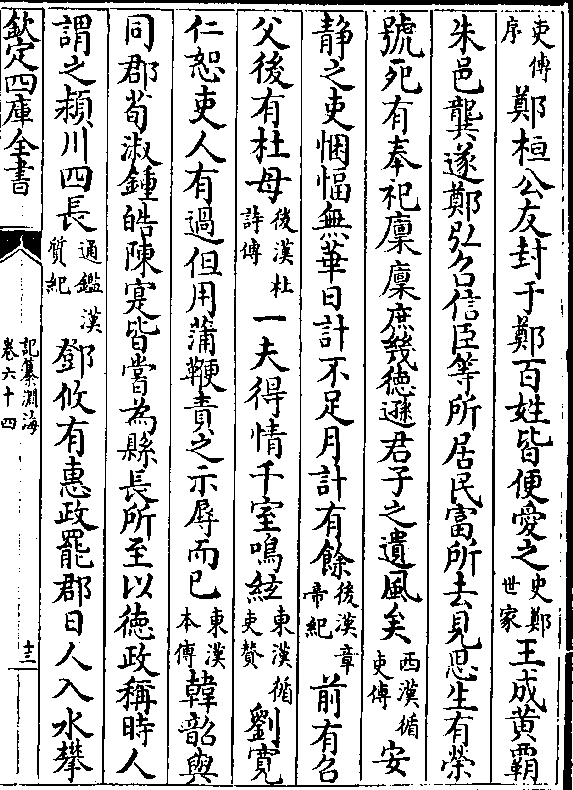 吏傳序鄭桓公友封于鄭百姓皆便愛之史鄭世家王成黄霸
朱邑龔遂鄭弘召信臣等所居民富所去見思生有榮
號死有奉祀廪廪庶幾德遜君子之遺風矣西漢循吏傳安
静之吏悃愊無華日計不足月計有餘後漢章帝紀前有召
父後有杜母後漢杜詩傳一夫得情千室鳴絃東漢循吏贊劉寛
仁恕吏人有過但用蒲鞭責之示辱而已東漢本傳韓韶與
同郡荀淑鍾皓陳寔皆嘗為縣長所至以德政稱時人
謂之潁川四長通鑑漢質紀鄧攸有惠政罷郡日人入水攀
欽定四庫全書
記纂淵海
卷六十四
十三